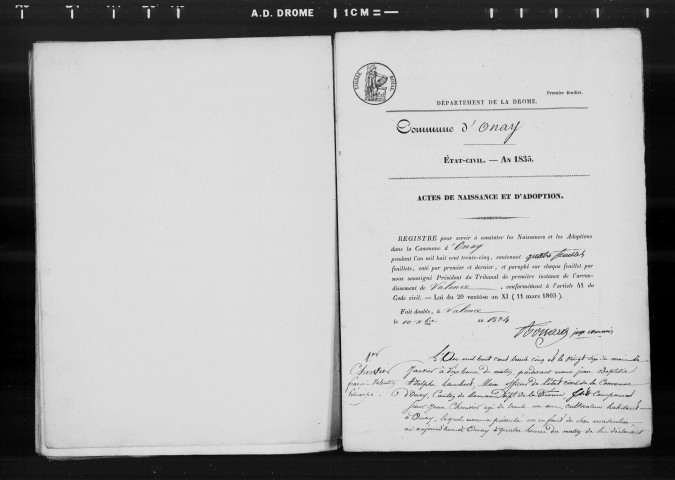 A.D. DROME 1CM =
TIMBRE ROYAL
Premier feuillet.
DÉPARTEMENT DE LA DROME.
Commune d'Onay
ÉTAT-CIVIL. — AN 1835.
ACTES DE NAISSANCE ET D'ADOPTION.
REGISTRE pour servir à constater les Naissances et les Adoptions
dans la Commune d'Onay
pendant l'an mil huit cent trente-cinq, contenant quatre feuillets
feuillets, coté par premier et dernier, et paraphé sur chaque feuillet par
nous soussigné Président du Tribunal de première instance de l'arron-
dissement de Valence, conformément à l'article 41 du
Code civil. — Loi du 20 ventôse an XI (11 mars 1803).
Fait double, à Valence
le 10 xbre 1834
1er
L'an mil huit cent trente cinq et le vingt six du mois de
Janvier à sept heures du matin, pardevant nous jean Baptiste
Adolphe Lambert, Maire officier de l'état civil de la Commune
d'Onay, Canton de Romans Dépt de la Drome est Comparu
Jean agé de trente un ans, cultivateur habitant
à Onay, lequel nous a présenté un enfant de sexe masculin,
né aujourd'hui à Onay à quatre heures du matin de lui déclarant